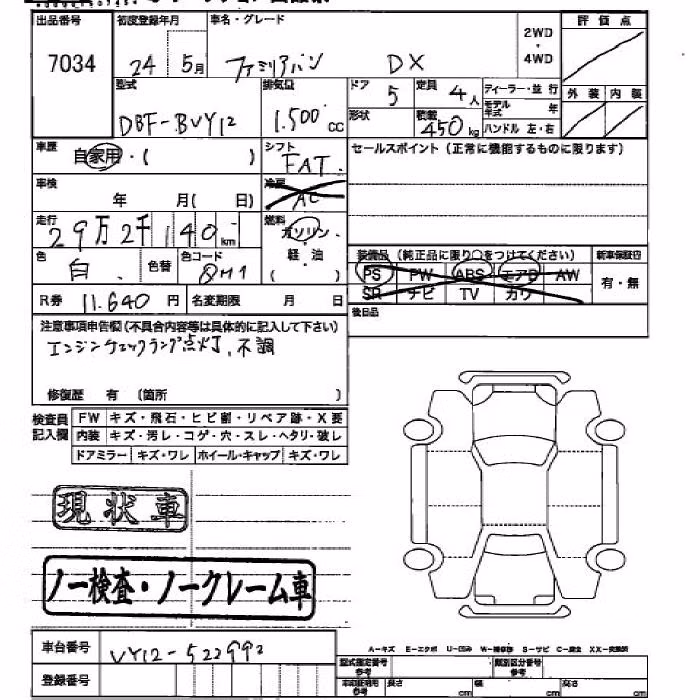 出品番号 初度登録年月 車名・グレード 2WD・4WD 評価点
7034 24 5月 ファミリアバン DX
型式 排気量 ドア 定員 ディーラー・並行 外装 内装
DBF-BVY12 1.500cc 5 4人 モデル年式 年
形状 積載 450kg ハンドル 左・右
車歴 自家用・( ) シフト FAT. セールスポイント(正常に機能するものに限ります)
車検 年 月(日) 冷房 AC
走行 29万2千140km 燃料 ガソリン・軽油 ( )
装備品(純正品に限り○をつけてください) 新車保証書
色 白. 色替 色コード 8H1 PS PW ABS エアB AW 有・無
SR ナビ TV カワ
R券 11.640円 名変期限 月 日 後日品
注意事項申告欄(不具合内容等は具体的に記入して下さい)
エンジンチェックランプ点灯、不調
修復歴 有 (箇所 )
検査員記入欄 FW キズ・飛石・ヒビ割・リペア跡・X要
内装 キズ・汚レ・コゲ・穴・スレ・ヘタリ・破レ
ドアミラー キズ・ワレ ホイール・キャップ キズ・ワレ
現状車
ノー検査・ノークレーム車
車台番号 VY12-522992
A-キズ E-エクボ U-凹ミ W-補修跡 S-サビ C-腐食 XX-交換済
登録番号 型式指定番号 参考 類別区分番号 参考
車庫証明用 参考 長さ cm 幅 cm 高さ cm